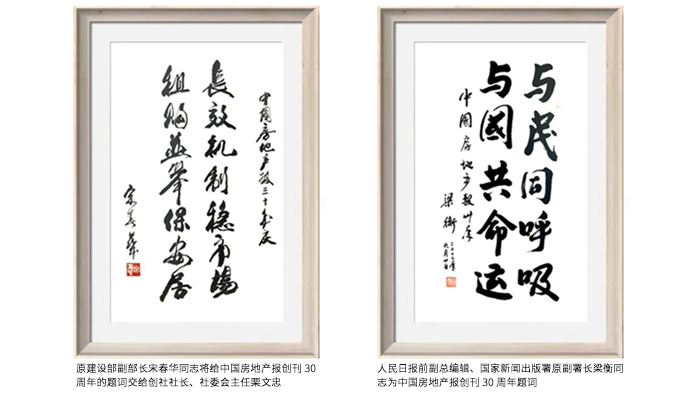 中国房地产报三十年庆
長效机制稳市場
租购並举保安居
宋春华
与民同呼吸
与國共命运
中國房地产报卅年
梁衡
原建设部副部长宋春华同志将给中国房地产报创刊 30
周年的题词交给创社社长、社委会主任栗文忠
人民日报前副总编辑、国家新闻出版署原副署长梁衡同
志为中国房地产报创刊 30 周年题词